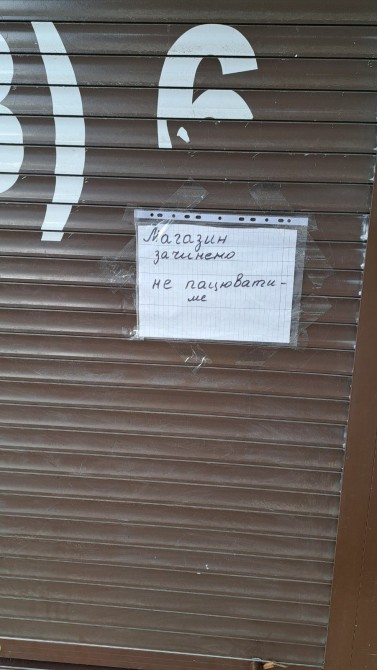 3) 6
Магазин
зачинено
не пацювати-
ме